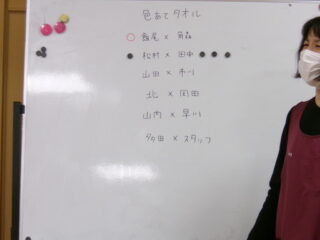 色あて タオル
飯尾 × 角森
松村 × 田中
山田 × 市川
北 × 岡田
山内 × 早川
多田 × スタッフ